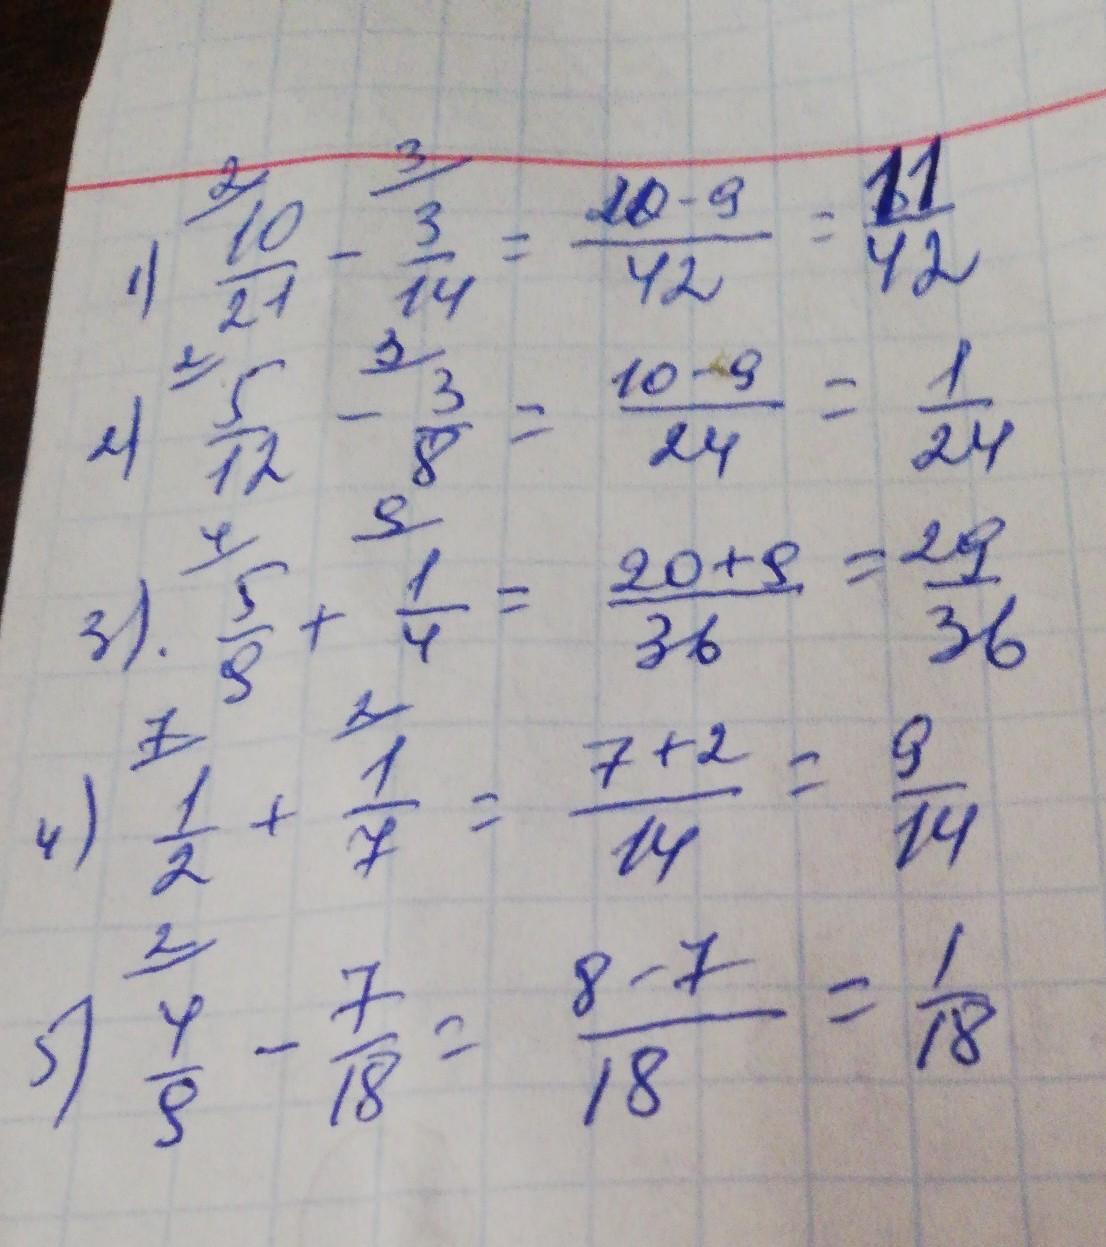 1) 2/ 10/21 - 3/ 3/14 = 20-9/42 = 11/42
2) 2/ 5/12 - 3/ 3/8 = 10-9/24 = 1/24
3). 4/ 5/9 + 9/ 1/4 = 20+9/36 = 29/36
4) 7/ 1/2 + 2/ 1/7 = 7+2/14 = 9/14
5) 2/ 4/9 - 7/18 = 8-7/18 = 1/18